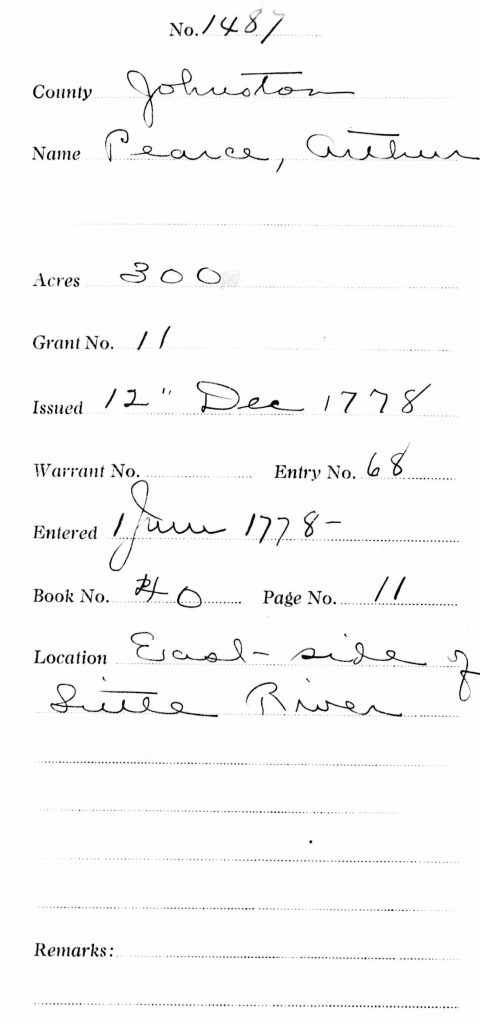 No. 1487
County Johnston
Name Pearce, Arthur
Acres 300
Grant No. 11
Issued 12" Dec 1778
Warrant No. Entry No. 68
Entered 1 June 1778-
Book No. 40 Page No. 11
Location East- side of
Little River
Remarks: